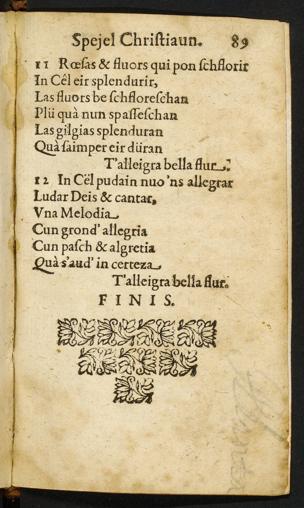 Spejel Christiaun. 89
11 Rœsas & fluors qui pon schflorir
In Cêl eir splendurir,
Las fluors be schfloreschan
Plü quà nun spasseschan
Las gilgias splenduran
Quà saimper eir düran
T'alleigra bella flur.
12 In Cël pudain nuo 'ns allegrar
Ludar Deis & cantar,
Vna Melodia
Cun grond' allegria
Cun pasch & algretia
Quà s'aud' in certeza
T'alleigra bella flur.
FINIS.